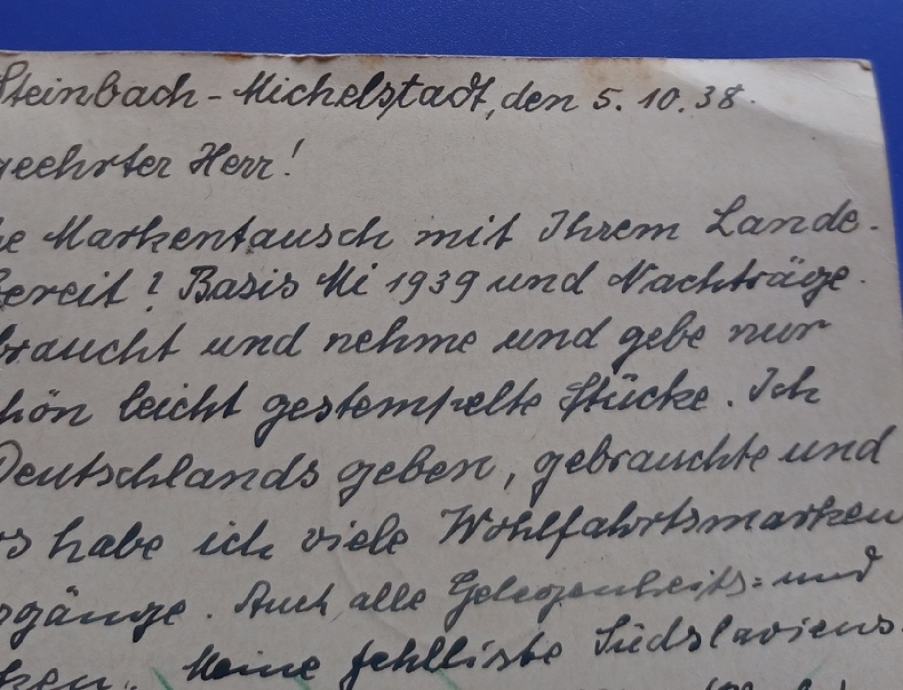 Steinbach - Michelstadt, den 5. 10. 38.
geehrter Herr!
Markentausch mit Ihrem Lande.
bereit? Basis Mi 1939 und Nachträge.
braucht und nehme und gebe nur
hön leicht gestempelte Stücke. Ich
Deutschlands geben, gebrauchte und
rs habe ich viele Wohlfahrtsmarken
rgänge. Auch alle Gelegenheits= und
ken. Meine Fehlliste Südslaviens